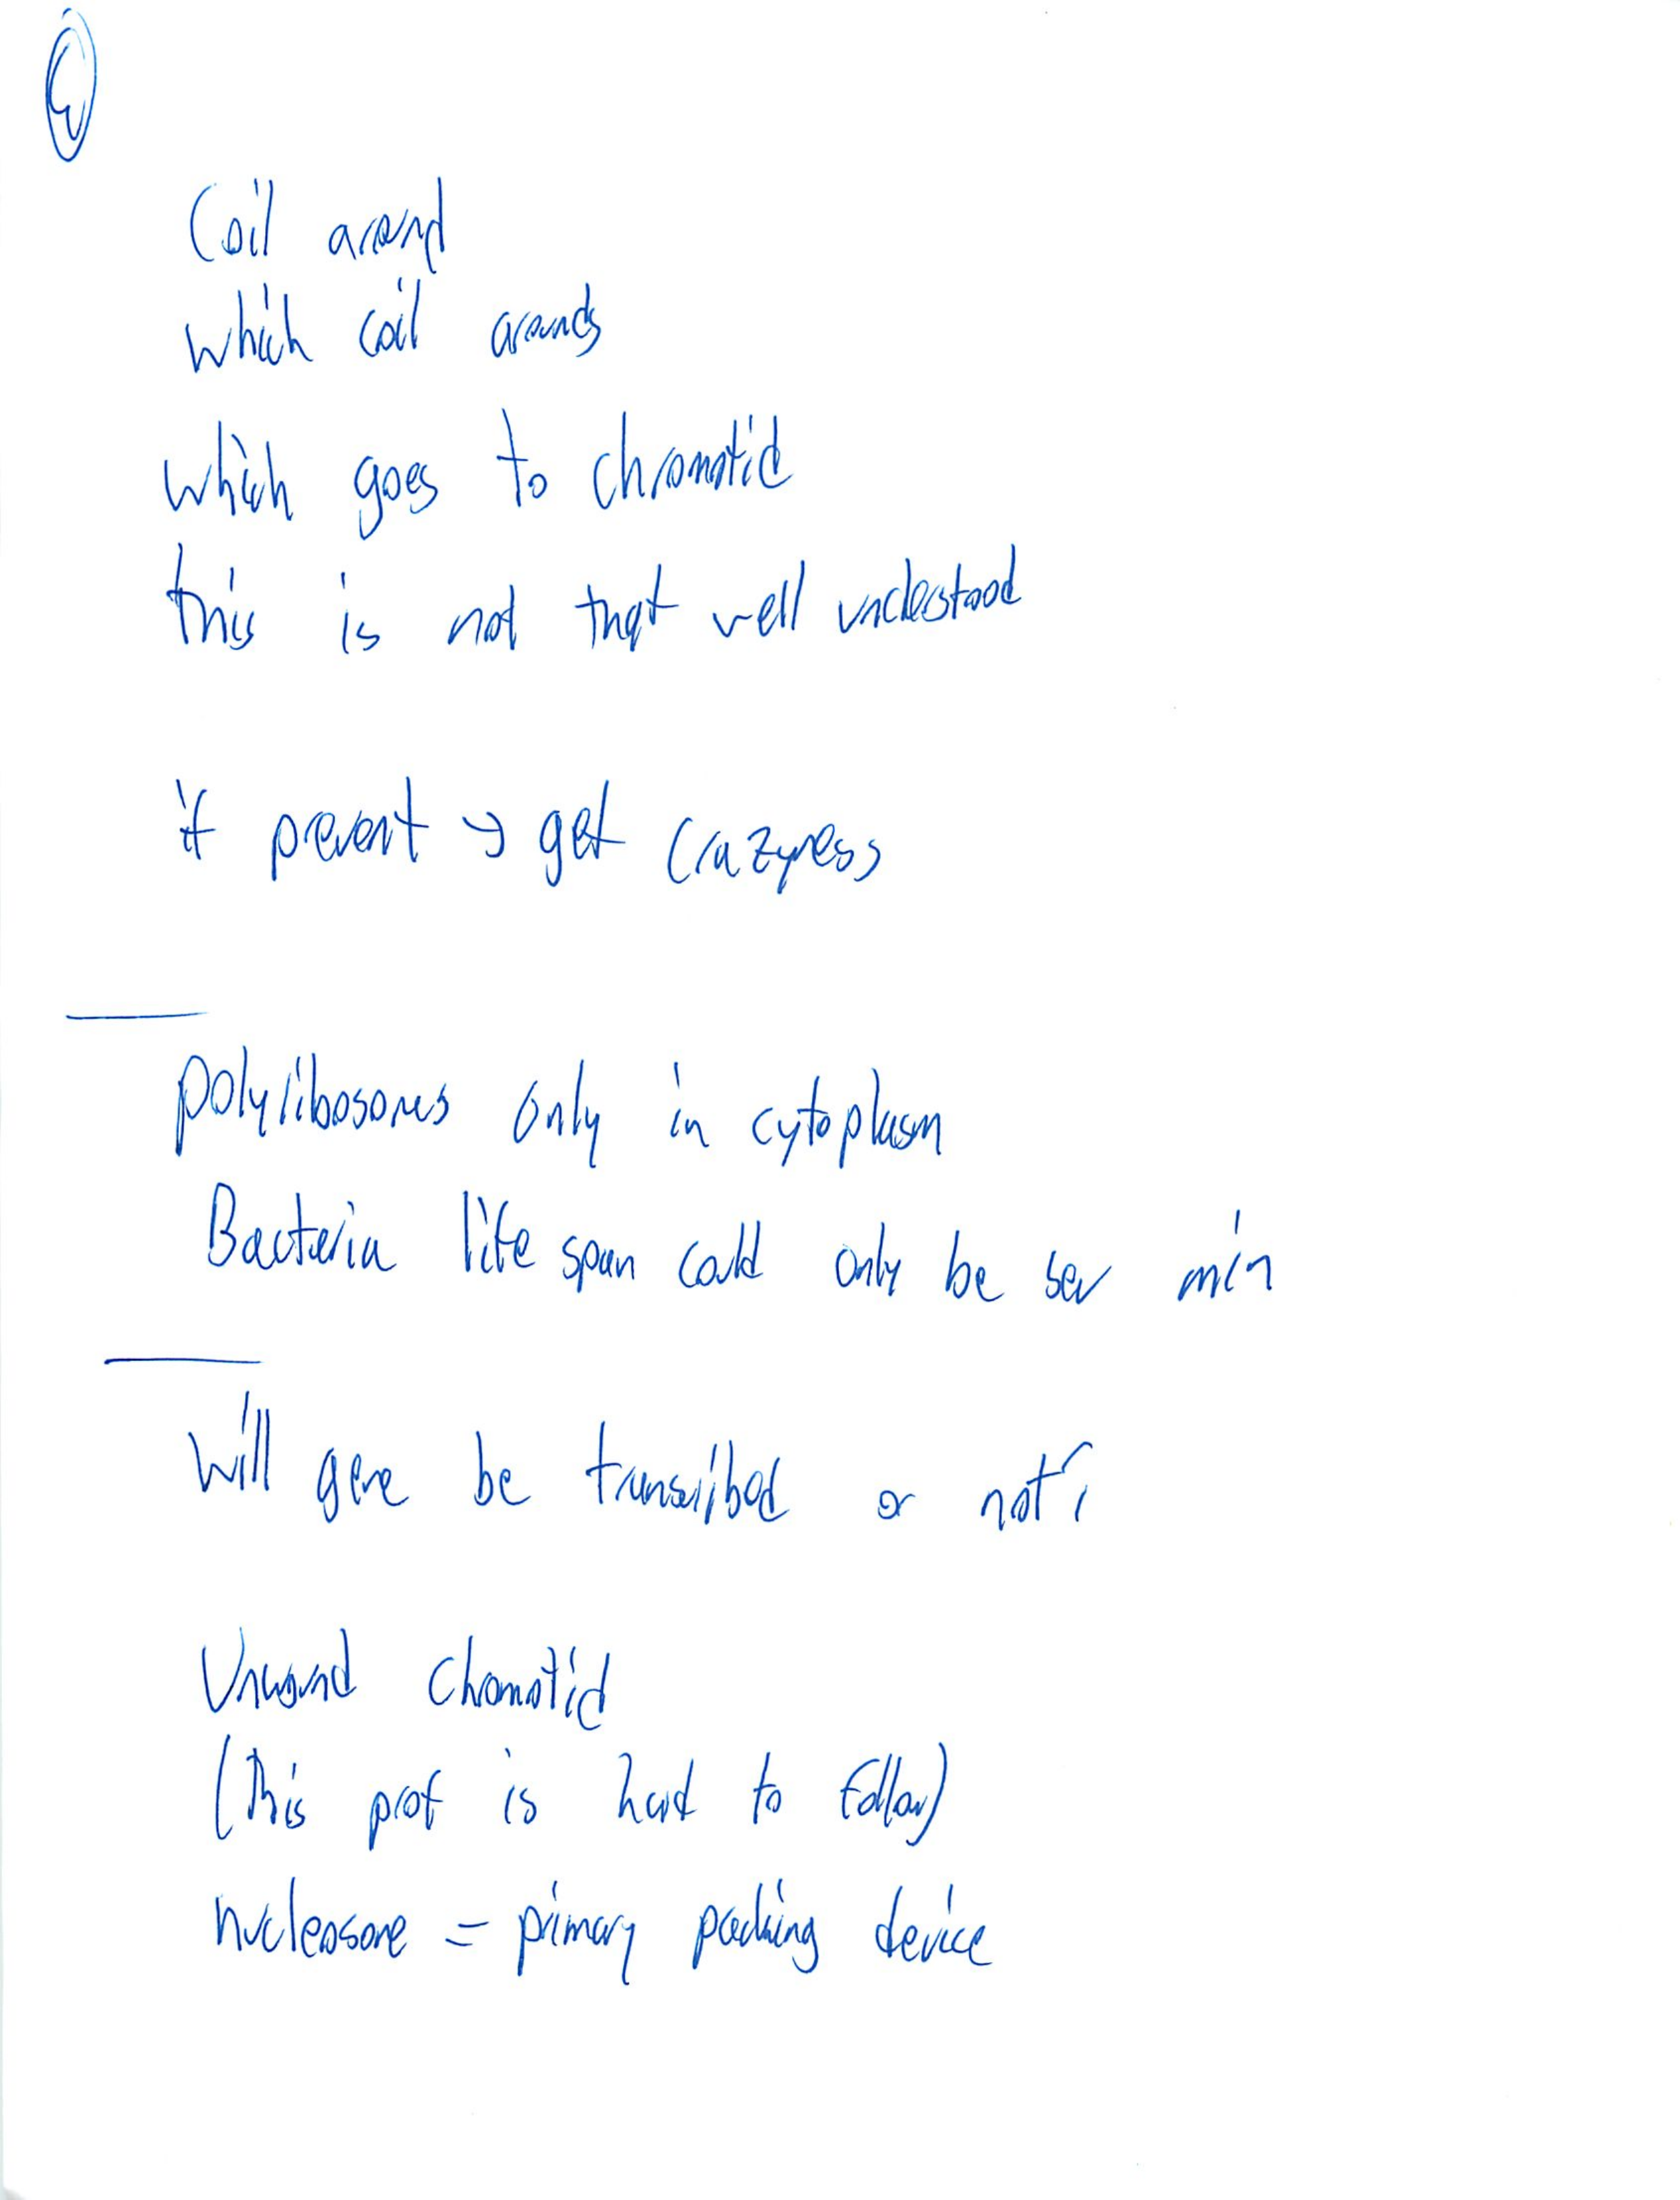 Coil around
which coil arounds
which goes to chromatid
this is not that well understood
if prevent → get crazyness
polyribosomes only in cytoplasm
Bacteria life span could only be sev min
Will gene be transcribed or not?
Unwound chromatid
(This prof is hard to follow)
nucleosome = primary packing device